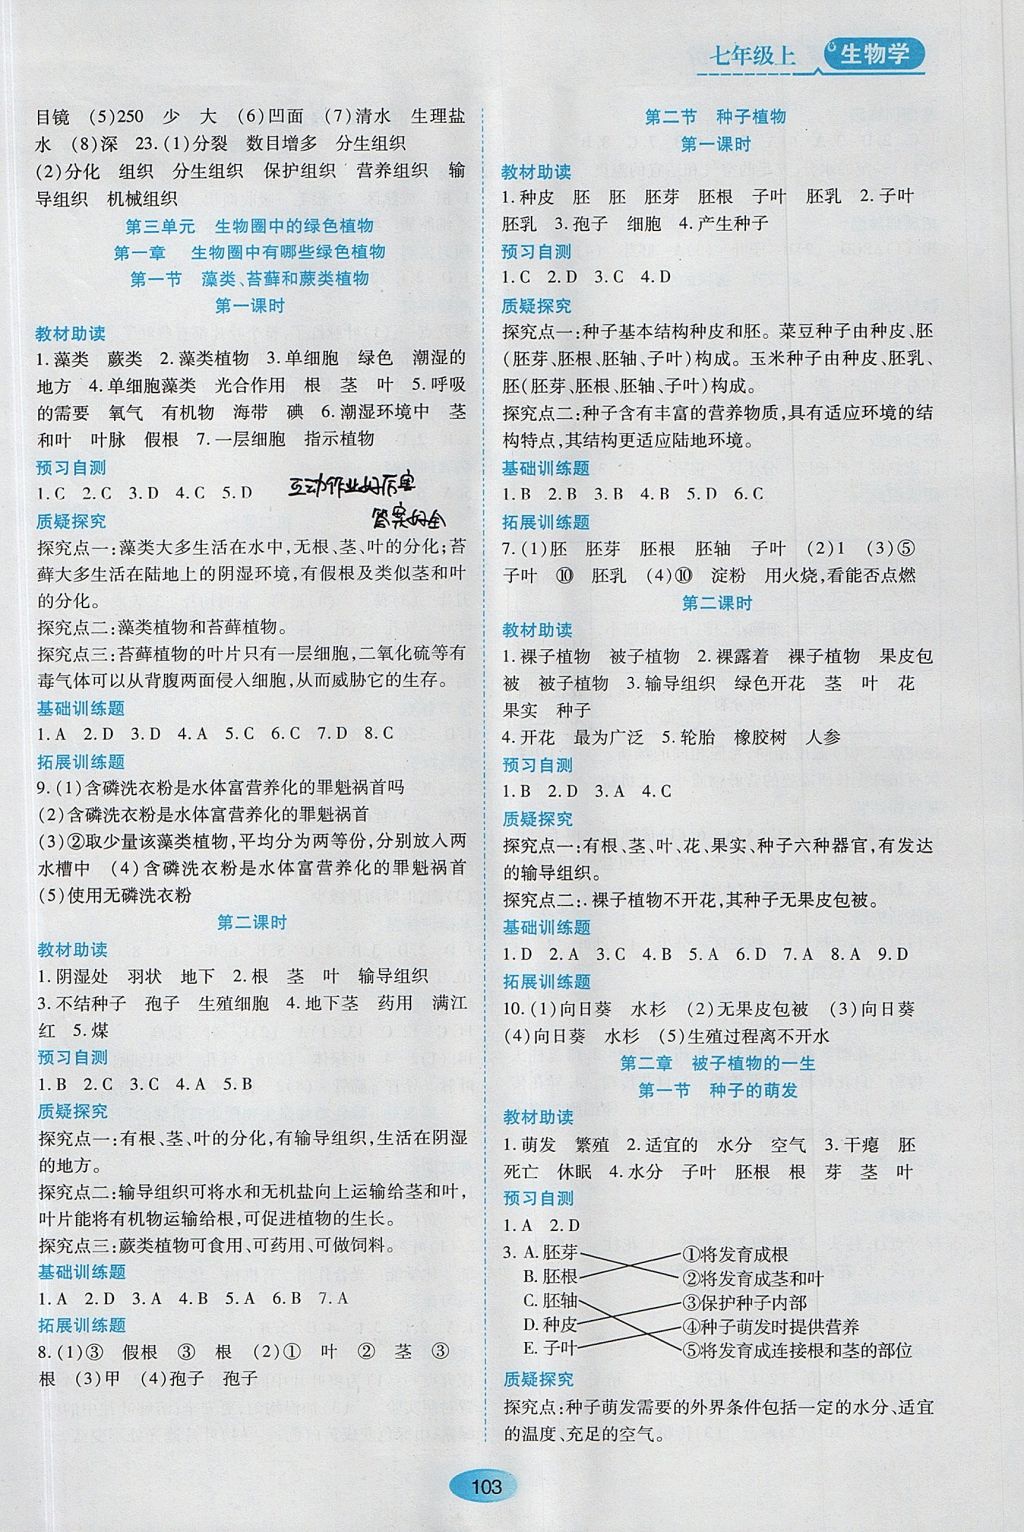 七年级上 生物学
目镜 (5)250 少 大 (6)凹面 (7)清水 生理盐
水 (8)深 23.(1)分裂 数目增多 分生组织
(2)分化 组织 分生组织 保护组织 营养组织 输
导组织 机械组织
第三单元 生物圈中的绿色植物
第一章 生物圈中有哪些绿色植物
第一节 藻类、苔藓和蕨类植物
第一课时
教材助读
1.藻类 蕨类 2.藻类植物 3.单细胞 绿色 潮湿的
地方 4.单细胞藻类 光合作用 根 茎 叶 5.呼吸
的需要 氧气 有机物 海带 碘 6.潮湿环境中 茎
和叶 叶脉 假根 7.一层细胞 指示植物
预习自测
1.C 2.C 3.D 4.C 5.D
互动作业好厉害
答案好全
质疑探究
探究点一:藻类大多生活在水中,无根、茎、叶的分化;苔
藓大多生活在陆地上的阴湿环境,有假根及类似茎和叶
的分化。
探究点二:藻类植物和苔藓植物。
探究点三:苔藓植物的叶片只有一层细胞,二氧化硫等有
毒气体可以从背腹两面侵入细胞,从而威胁它的生存。
基础训练题
1.A 2.D 3.D 4.A 5.C 6.C 7.D 8.C
拓展训练题
9.(1)含磷洗衣粉是水体富营养化的罪魁祸首吗
(2)含磷洗衣粉是水体富营养化的罪魁祸首
(3)②取少量该藻类植物,平均分为两等份,分别放入两
水槽中 (4)含磷洗衣粉是水体富营养化的罪魁祸首
(5)使用无磷洗衣粉
第二课时
教材助读
1.阴湿处 羽状 地下 2.根 茎 叶 输导组织
3.不结种子 孢子 生殖细胞 4.地下茎 药用 满江
红 5.煤
预习自测
1.B 2.C 3.C 4.A 5.B
质疑探究
探究点一:有根、茎、叶的分化,有输导组织,生活在阴湿
的地方。
探究点二:输导组织可将水和无机盐向上运输给茎和叶,
叶片能将有机物运输给根,可促进植物的生长。
探究点三:蕨类植物可食用、可药用、可做饲料。
基础训练题
1.A 2.D 3.A 4.B 5.A 6.B 7.A
拓展训练题
8.(1)③ 假根 ③ 根 (2)① 叶 ② 茎 ③
根 (3)甲 (4)孢子 孢子
第二节 种子植物
第一课时
教材助读
1.种皮 胚 胚 胚芽 胚根 子叶 胚乳 2.子叶
胚乳 3.孢子 细胞 4.产生种子
预习自测
1.C 2.D 3.C 4.D
质疑探究
探究点一:种子基本结构种皮和胚。菜豆种子由种皮、胚
(胚芽、胚根、胚轴、子叶)构成。玉米种子由种皮、胚乳、
胚(胚芽、胚根、胚轴、子叶)构成。
探究点二:种子含有丰富的营养物质,具有适应环境的结
构特点,其结构更适应陆地环境。
基础训练题
1.B 2.B 3.B 4.B 5.D 6.C
拓展训练题
7.(1)胚 胚芽 胚根 胚轴 子叶 (2)1 (3)⑤
子叶 ⑩ 胚乳 (4)⑩ 淀粉 用火烧,看能否点燃
第二课时
教材助读
1.裸子植物 被子植物 2.裸露着 裸子植物 果皮包
被 被子植物 3.输导组织 绿色开花 茎 叶 花
果实 种子
4.开花 最为广泛 5.轮胎 橡胶树 人参
预习自测
1.B 2.D 3.A 4.C
质疑探究
探究点一:有根、茎、叶、花、果实、种子六种器官,有发达
的输导组织。
探究点二:.裸子植物不开花,其种子无果皮包被。
基础训练题
1.D 2.A 3.C 4.B 5.A 6.D 7.A 8.A 9.D
拓展训练题
10.(1)向日葵 水杉 (2)无果皮包被 (3)向日葵
(4)向日葵 水杉 (5)生殖过程离不开水
第二章 被子植物的一生
第一节 种子的萌发
教材助读
1.萌发 繁殖 2.适宜的 水分 空气 3.干瘪 胚
死亡 休眠 4.水分 子叶 胚根 根 芽 茎 叶
预习自测
1.A 2.D
3. A.胚芽 ①将发育成根
B.胚根 ②将发育成茎和叶
C.胚轴 ③保护种子内部
D.种皮 ④种子萌发时提供营养
E.子叶 ⑤将发育成连接根和茎的部位
质疑探究
探究点:种子萌发需要的外界条件包括一定的水分、适宜
的温度、充足的空气。
103